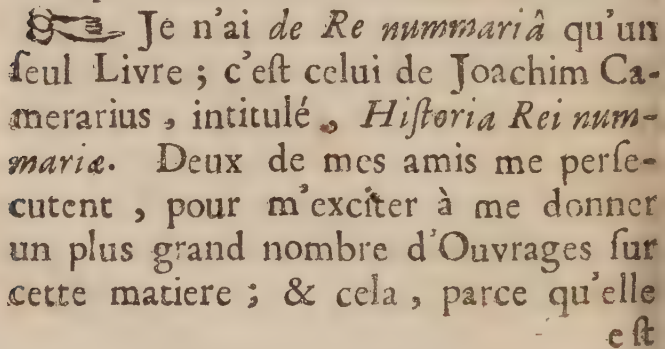 ☞ Je n'ai de Re nummariâ qu'un
ſeul Livre ; c'eſt celui de Joachim Ca-
merarius , intitulé , Hiſtoria Rei num-
mariæ. Deux de mes amis me perſe-
cutent , pour m'exciter à me donner
un plus grand nombre d'Ouvrages ſur
cette matiere ; & cela , parce qu'elle
eſt